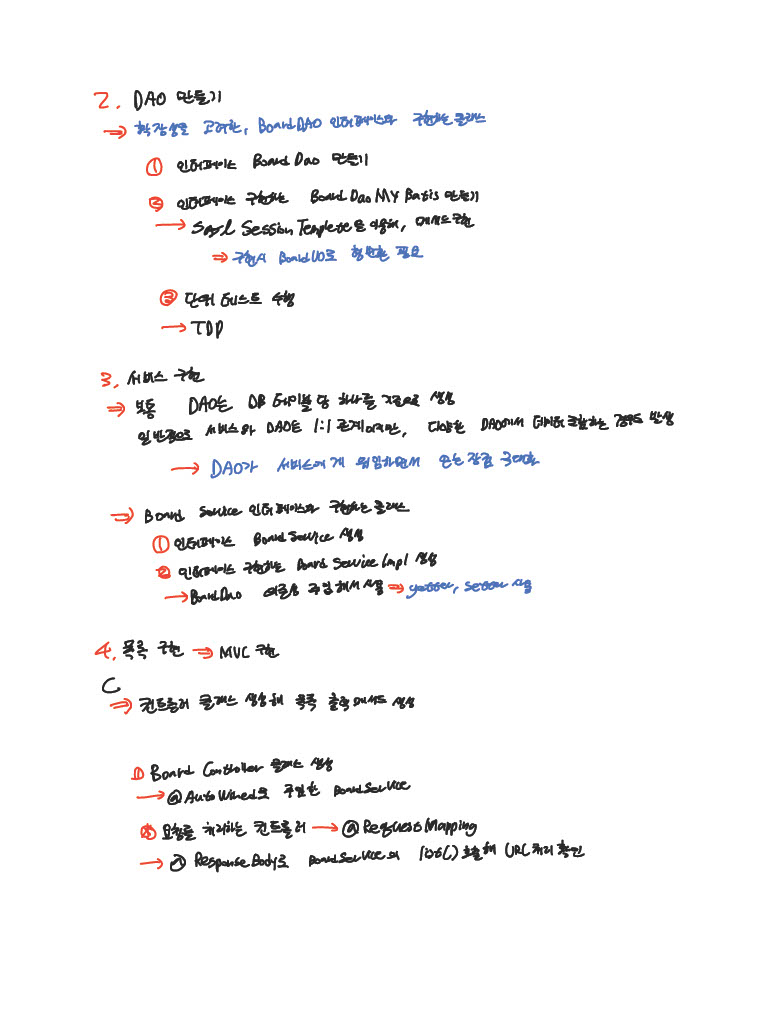 2. DAO 만들기
⇒ 확장성을 고려한, BoardDAO 인터페이스와 구현하는 클래스
① 인터페이스 Board Dao 만들기
② 인터페이스 구현하는 Board Dao MY Batis 만들기
→ Sql Session Templete을 이용해, 메서드 구현
⇒ 구현시 BoardVO로 형변환 필요
③ 단위 테스트 수행
→ TDD
3. 서비스 구현
⇒ 보통 DAO는 DB 테이블 당 하나를 기준으로 생성
일반적으로 서비스와 DAO는 1:1 관계이지만, 다양한 DAO에서 데이터 조합하는 경우도 발생
→ DAO가 서비스에게 위임하면서 얻는 장점 극대화
⇒ Board Service 인터페이스와 구현하는 클래스
① 인터페이스 Board Service 생성
② 인터페이스 구현하는 Board Service Impl 생성
→ BoardDao 의존성 주입해서 사용 ⇒ getter, setter 사용
4. 목록 구현 ⇒ MVC 구현
C
⇒ 컨트롤러 클래스 생성해 목록 출력 메서드 생성
① Board Controller 클래스 생성
→ @AutoWired로 주입한 BoardService
② 요청을 처리하는 컨트롤러 → @RequestMapping
→ @ResponseBody로 BoardService의 list() 호출해 URL 처리 확인